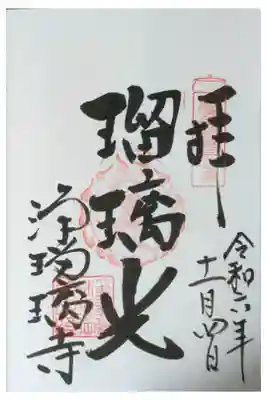 拝
令和六年
十一月四日
瑠璃光
浄瑠璃寺